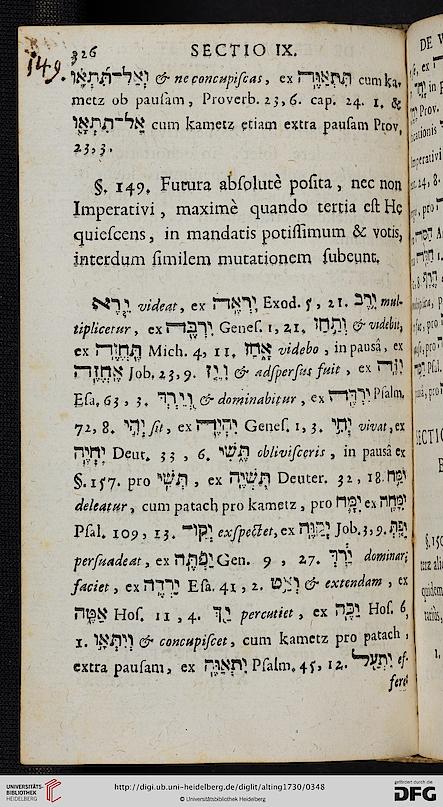 149.
326 SECTIO IX.
וְאַל־תִּתְאָו & ne concupiscas, ex תִּתְאַוֶּה cum ka-
metz ob pausam, Proverb. 23, 6. cap. 24. 1. &
אַל־תִּתְאָו cum kametz etiam extra pausam Prov.
23, 3.
§. 149. Futura absolutè posita, nec non
Imperativi, maximè quando tertia est He
quiescens, in mandatis potissimum & votis,
interdum similem mutationem subeunt.
יֵרֶא videat, ex יִרְאֶה Exod. 5, 21. יִרֶב mul-
tiplicetur, ex יִרְבֶּה Genes. 1, 21. וְתַחַז & videbit,
ex תֶּחֱזֶה Mich. 4, 11. אָחַז videbo, in pausâ, ex
אֶחֱזֶה Job. 23, 9. וְיֵז & adspersus fuit, ex יִזֶּה
Esa. 63, 3. וְיֵרְדְּ & dominabitur, ex יִרְדֶּה Psalm.
72, 8. יְהִי sit, ex יִהְיֶה Genes. 1, 3. יְחִי vivat, ex
יִחְיֶה Deut. 33, 6. תֶּשִׁי oblivisceris, in pausâ ex
§. 157. pro תְּשִׁי, ex תִּשְׁיֶה Deuter. 32, 18. יִמַּח
deleatur, cum patach pro kametz, pro יִמָּח ex יִמָּחֶה
Psal. 109, 13. יְקַו exspectet, ex יְקַוֶּה Job. 3, 9. יַפְתְּ
persuadeat, ex יַפְתֶּה Gen. 9, 27. יַרְדְּ dominari
faciet, ex יַרְדֶּה Esa. 41, 2. וְאַט & extendam, ex
אַטֶּה Hos. 11, 4. יַךְ percutiet, ex יַכֶּה Hos. 6,
1. וְיִתְאָו & concupiscet, cum kametz pro patach,
extra pausam, ex יִתְאַוֶּה Psalm. 45, 12. יִתְעַל ef-
feret
UNIVERSITÄTS-
BIBLIOTHEK
HEIDELBERG
http://digi.ub.uni-heidelberg.de/diglit/alting1730/0348
© Universitätsbibliothek Heidelberg
gefördert durch die
DFG